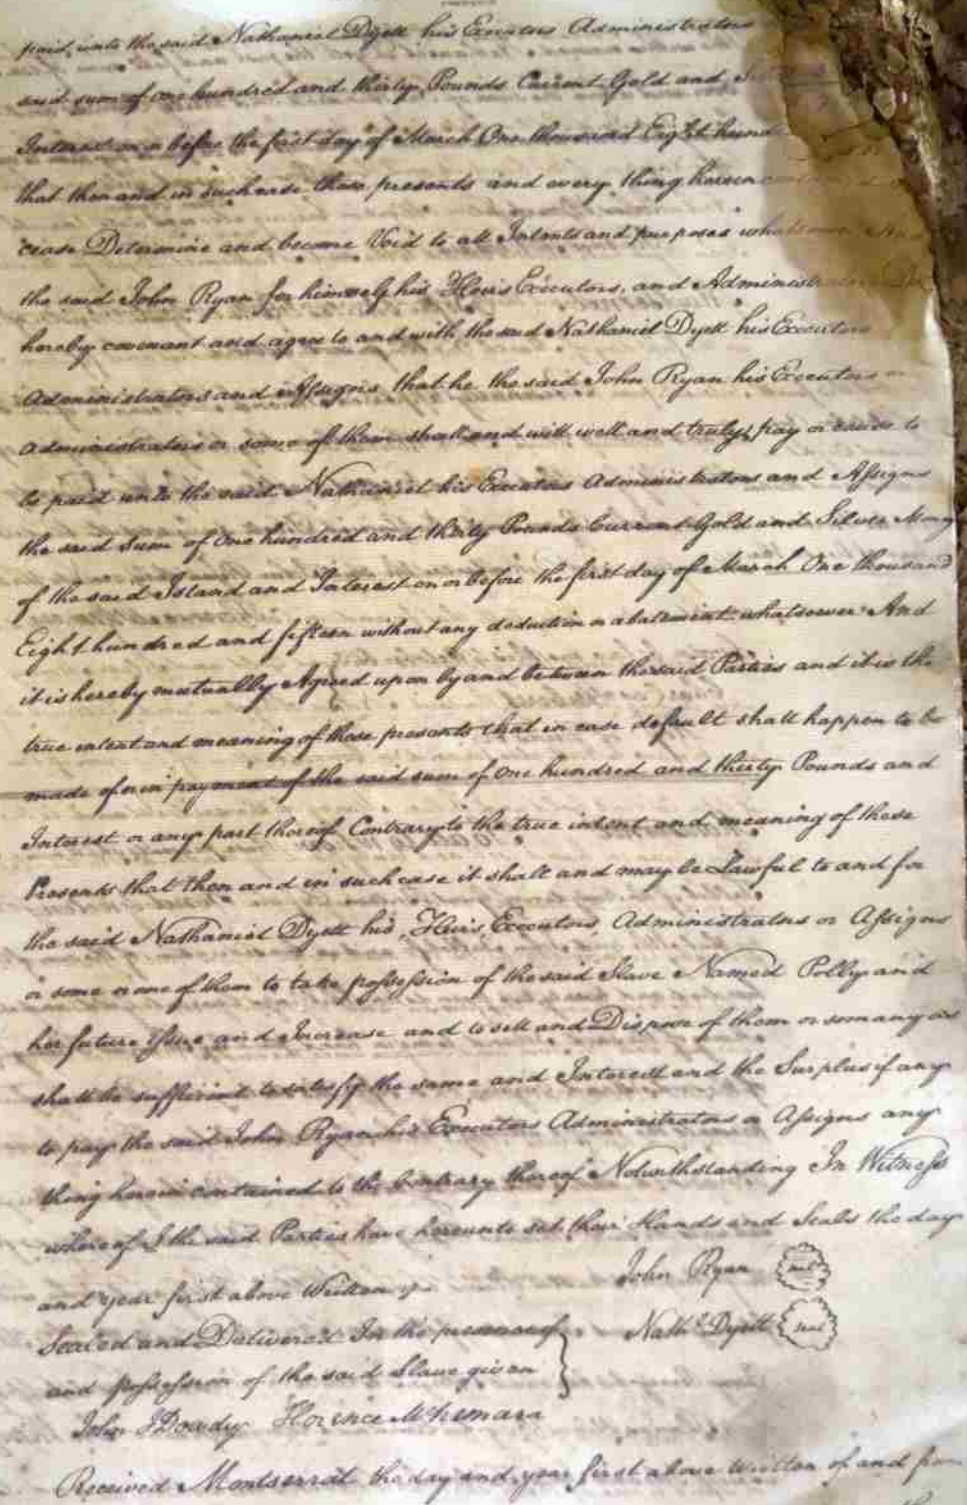 paid, unto the said Nathaniel Dyett his Executors Administrators
said sum of one hundred and thirty Pounds Current Gold and
Interest on or before the first day of March One thousand Eight hund
that then and in such case these presents and every thing herein
cease Determine and become Void to all Intents and purposes whatsoever
the said John Ryan for himself his Heirs Executors, and Administrators
hereby covenant and agree to and with the said Nathaniel Dyett his Executors
Administrators and Assigns that he the said John Ryan his Executors or
Administrators or some of them shall and will well and truly pay or cause to
be paid unto the said Nathaniel his Executors Administrators and Assigns
the said Sum of One hundred and thirty Pounds Current Gold and Silver Money
of the said Island and Interest on or before the first day of March One thousand
Eight hundred and fifteen without any deduction or abatement whatsoever And
it is hereby mutually Agreed upon by and between the said Parties and it is the
true intent and meaning of these presents that in case default shall happen to be
made of or in payment of the said sum of One hundred and thirty Pounds and
Interest or any part thereof Contrary to the true intent and meaning of these
Presents that then and in such case it shall and may be Lawful to and for
the said Nathaniel Dyett his, Heirs, Executors, Administrators or Assigns
or some or one of them to take possession of the said Slave Named Polly and
her future Issue and Increase and to sell and Dispose of them or so many as
shall be sufficient to satisfy the same and Interest and the Surplus if any
to pay the said John Ryan his Executors Administrators or Assigns any
thing herein contained to the Contrary thereof Notwithstanding In Witness
whereof the said Parties have hereunto set their Hands and Seals the day
and year first above Written
John Ryan seal
Sealed and Delivered In the presence of
Nathl Dyett seal
and possession of the said Slave given
John Dowdy Florence McNemara
Received Montserrat the day and year first above Written of and from